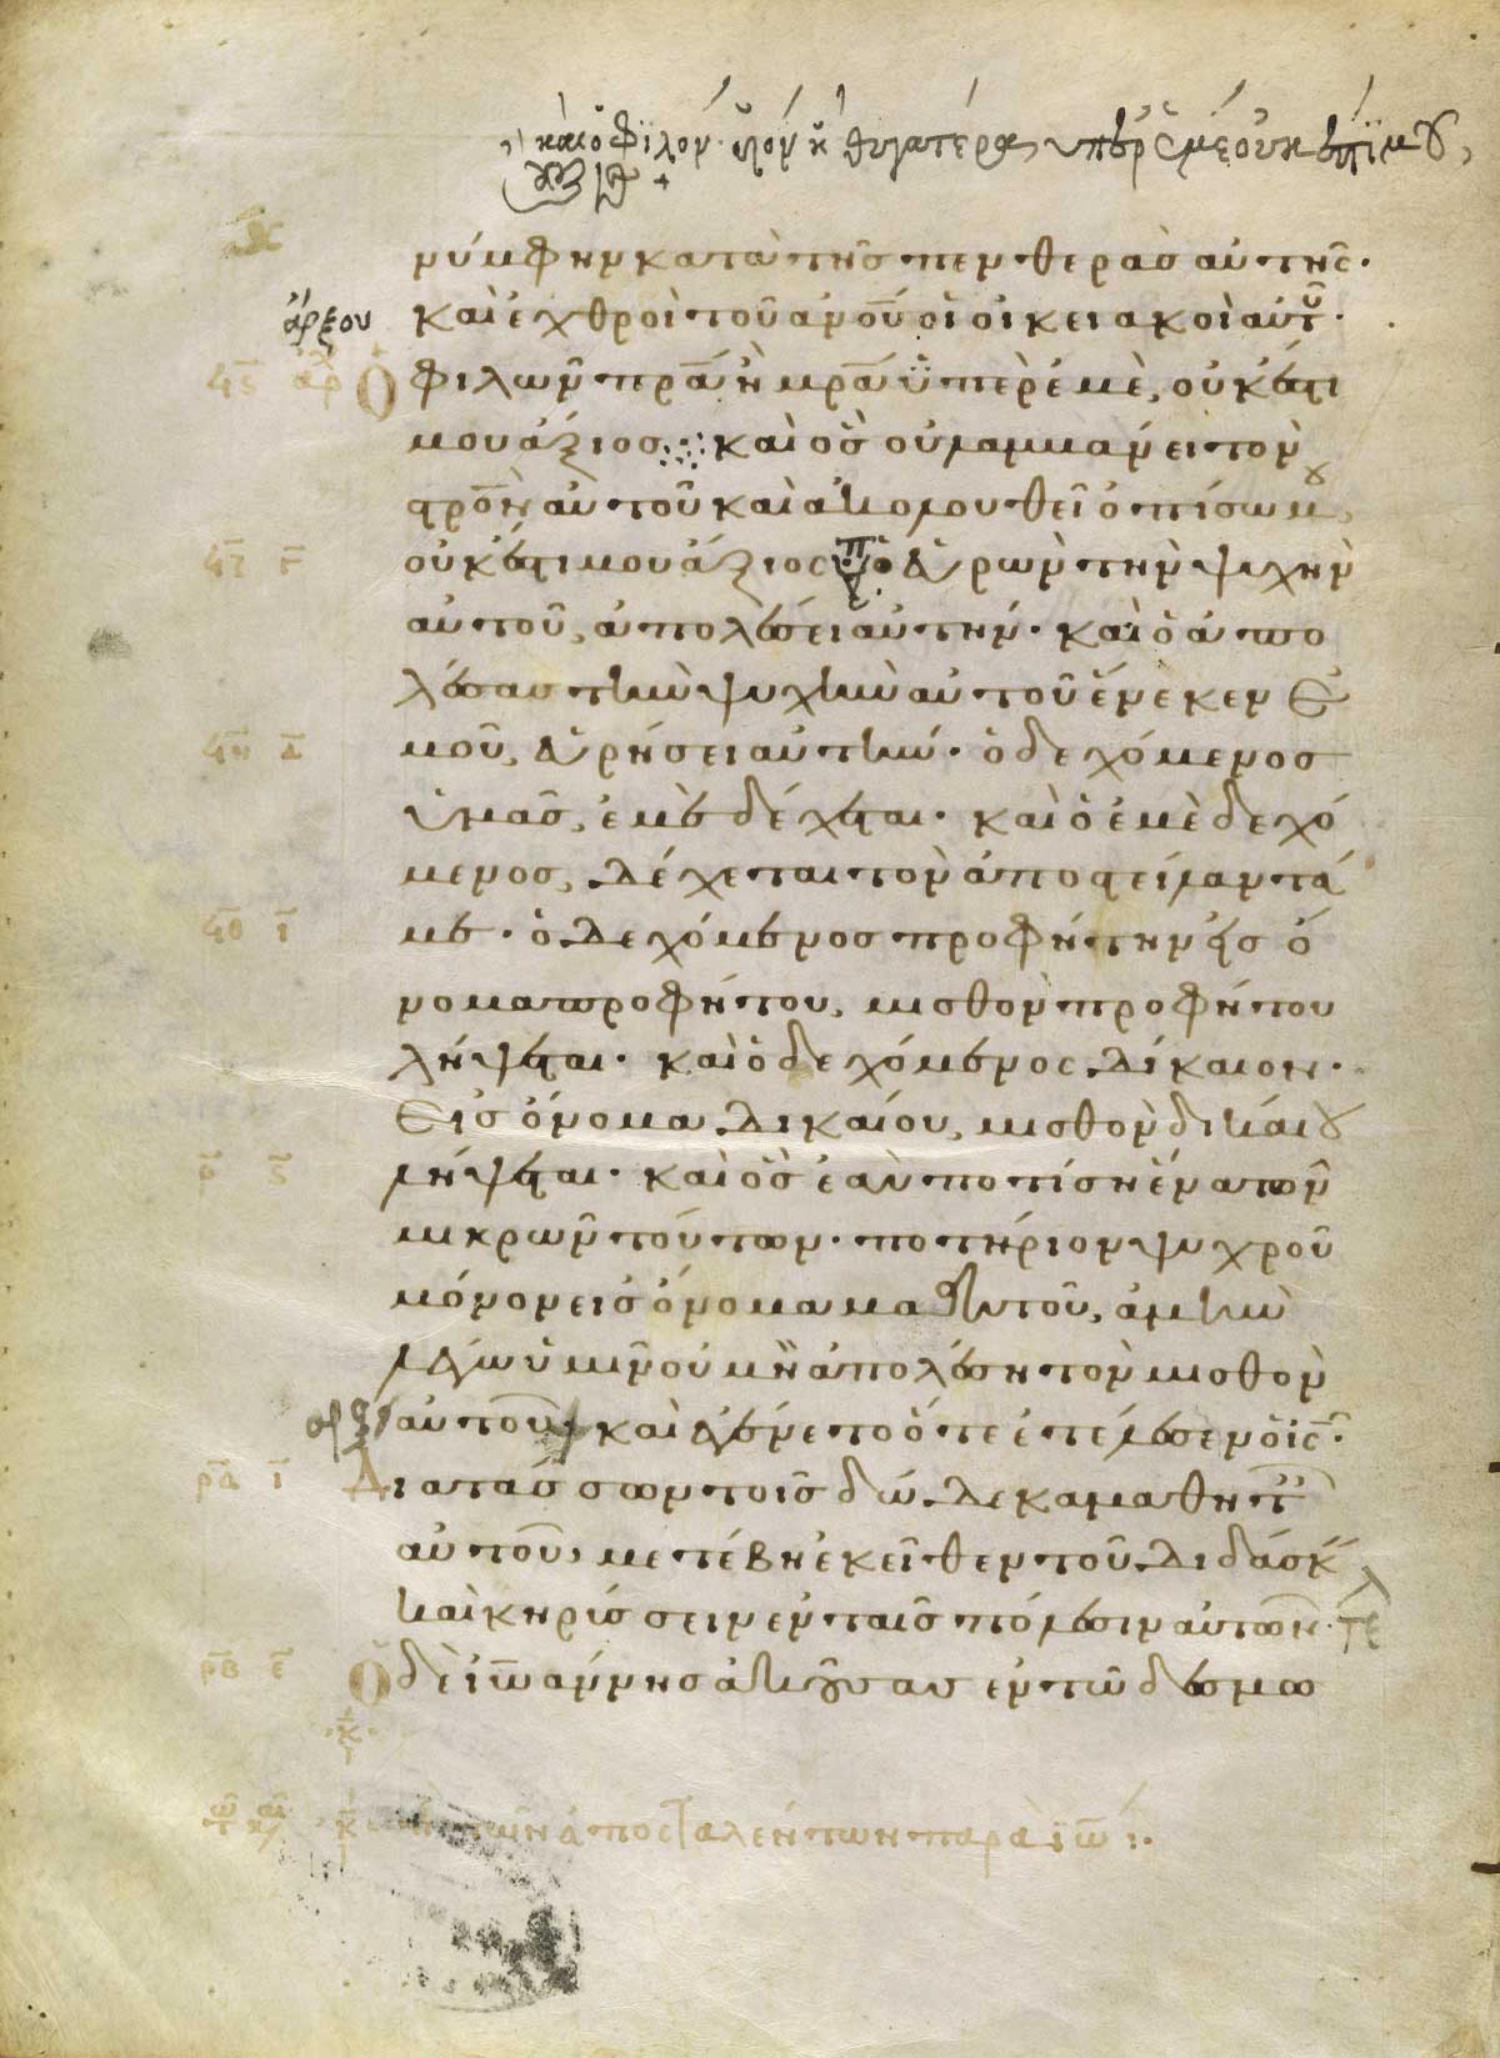 κ(αὶ) ὁ φιλὸν υἱὸν ἢ θυγατέρα, ὑπὲρ ἐμὲ οὐκ ἔστι μου,
ἄξιος +
νύμφην κατὰ τῆς πενθερᾶσ αὐτῆς·
ἄρξου
καὶ ἐχθροὶ τοῦ ἀνοῦ οἱ οἰκειακοὶ αὐτοῦ·
Ϟϛ
Ὁ φιλῶν πρᾶ ἢ μρᾶ ὑπὲρ ἐμὲ, οὐκ ἔστι
μου ἄξιοσ· καὶ ὃσ οὐ λαμμάνει τὸν
στρὸν αὐτοῦ καὶ ἀκολουθεῖ ὀπίσω μου,
Ϟζ γ
οὐκ ἔστι μου ἄξιος· ὁ εὑρὼν τὴν ψυχὴν
αὐτοῦ, ἀπολέσει αὐτήν· καὶ ὁ ἀπο
λέσασ τὴν ψυχὴν αὐτοῦ ἕνεκεν ἐ
Ϟη
μοῦ, εὑρήσει αὐτήν· ὁ δεχόμενοσ
ὑμᾶσ, ἐμὲ δέχεται· καὶ ὁ ἐμὲ δεχό
μενοσ, δέχεται τὸν ἀποστείλαντά
Ϟθ ι
με· ὁ δεχόμενοσ προφήτην εἰσ ὄ
νομα προφήτου, μισθὸν προφήτου
λήψεται· καὶ ὁ δεχόμενος δίκαιον·
Εἰσ ὄνομα δικαίου, μισθὸν δικαίου
ρ ϛ
λήψεται· καὶ ὃσ ἐὰν ποτίσῃ ἕνα τῶν
μικρῶν τούτων· ποτήριον ψυχροῦ
μόνον εἰσ ὄνομα μαθητοῦ, ἀμὴν
λέγω ὑμῖν οὐ μὴ ἀπολέσῃ τὸν μισθὸν
αὐτοῦ· καὶ ἐγένετο ὅτε ἐτέλεσεν ὁ ις·
ρα ι
Διατάσσων τοῖσ δώδεκα μαθητ
αὐτοῦ, μετέβη ἐκεῖθεν τοῦ διδάσκ
καὶ κηρύσσειν ἐν ταῖσ πόλεσιν αὐτῶν· τε
ρβ ε
Ὁ δὲ ἰωάννησ ἀκούσασ ἐν τῶ δεσμω
κ
κ ἀποσταλέντων παρὰ ἰω